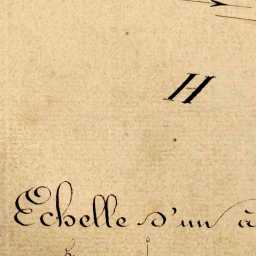 H
Echelle d'un à